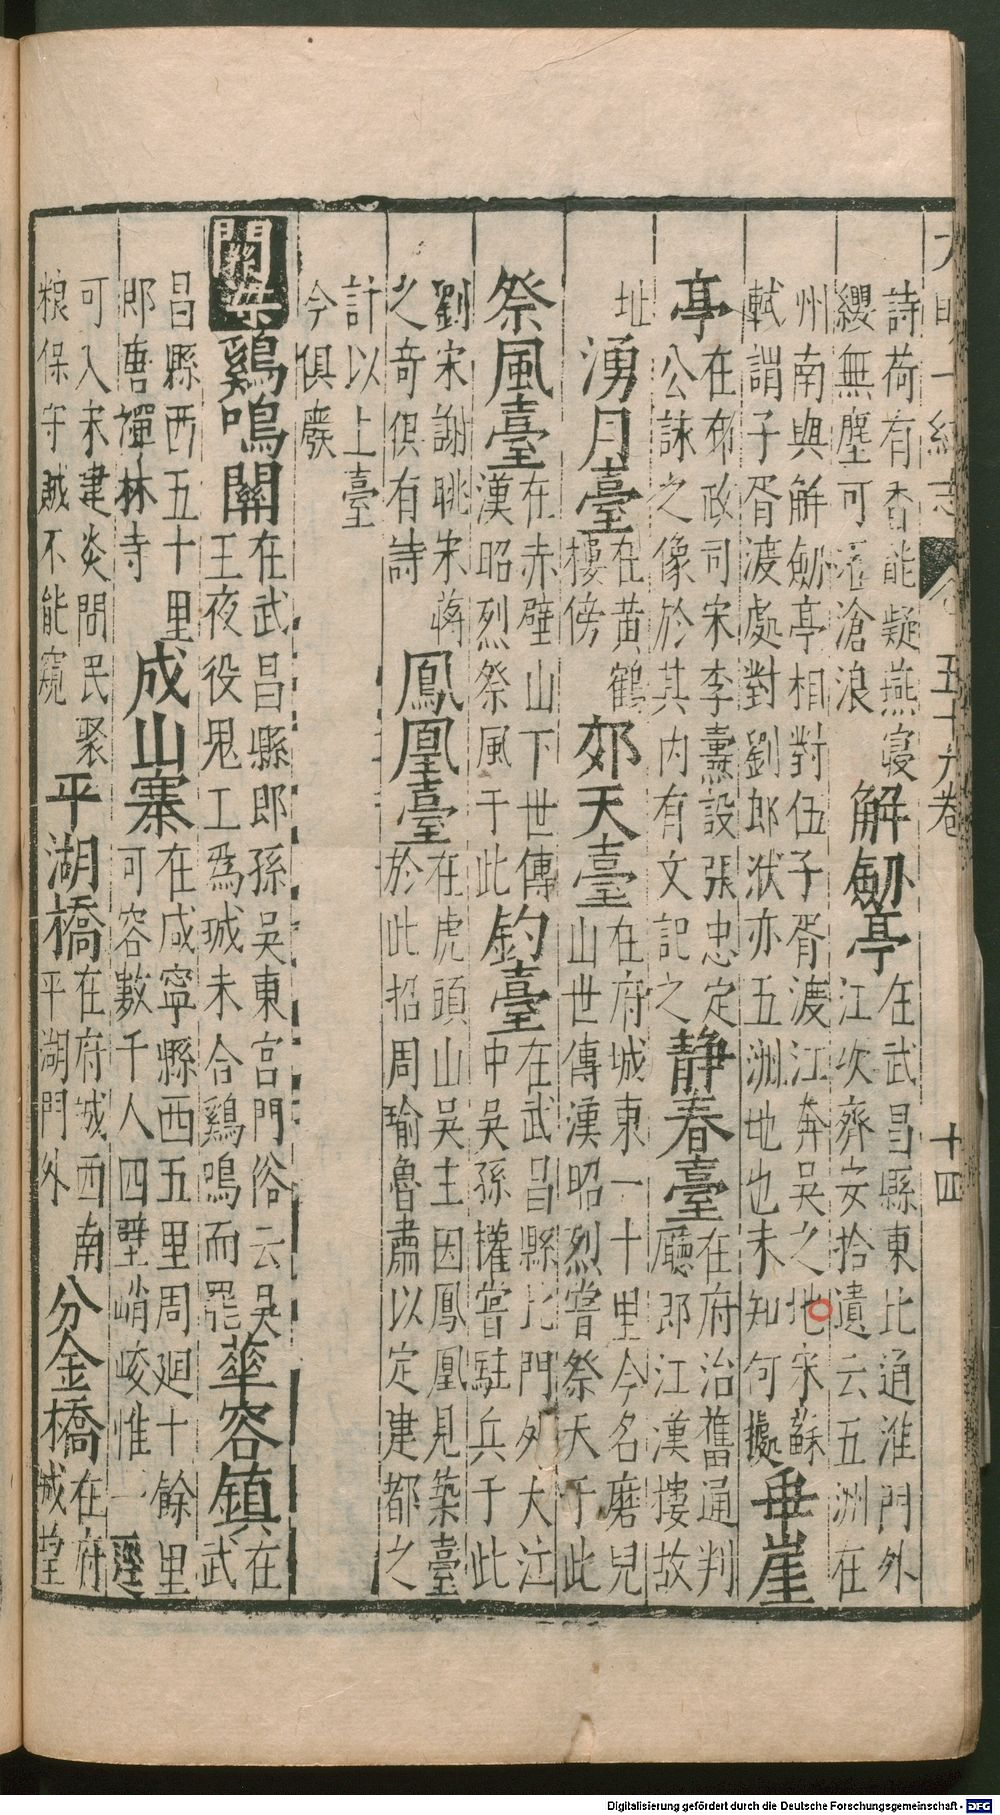 大明一統志 五十九卷 十四
詩荷有香能疑燕寢
纓無塵可濯滄浪
解劒亭
在武昌縣東北通淮門外
江次齊安拾遺云五洲在
州南與解劒亭相對伍子胥渡江奔吳之地宋蘇
軾謂子胥渡處對劉郎洑亦五洲地也未知何據
垂崖
亭
在布政司宋李燾設張忠定
公詠之像於其内有文記之
静春臺
在府治舊通判
廳郎江漢樓故
址
湧月臺
在黄鶴
樓傍
郊天臺
在府城東一十里今名磨兒
山世傳漢昭烈嘗祭天于此
祭風臺
在赤壁山下世傳
漢昭烈祭風于此
釣臺
在武昌縣北門外大江
中吳孫權嘗駐兵于此
劉宋謝眺宋蔣
之奇俱有詩
鳳凰臺
在虎頭山吳主因鳳凰見築臺
於此招周瑜魯肅以定建都之
計以上臺
今俱廢
關梁
鷄鳴關
在武昌縣郎孫吳東宫門俗云吳
王夜役鬼工爲城未合鷄鳴而罷
華容鎮
在武
昌縣西五十里
即唐禪林寺
成山寨
在咸寧縣西五里周廻十餘里
可容數千人四壁峭峻惟一逕
可入宋建炎間民聚
粮保守賊不能窺
平湖橋
在府城西南
平湖門外
分金橋
在府
城望
Digitalisierung gefördert durch die Deutsche Forschungsgemeinschaft - DFG